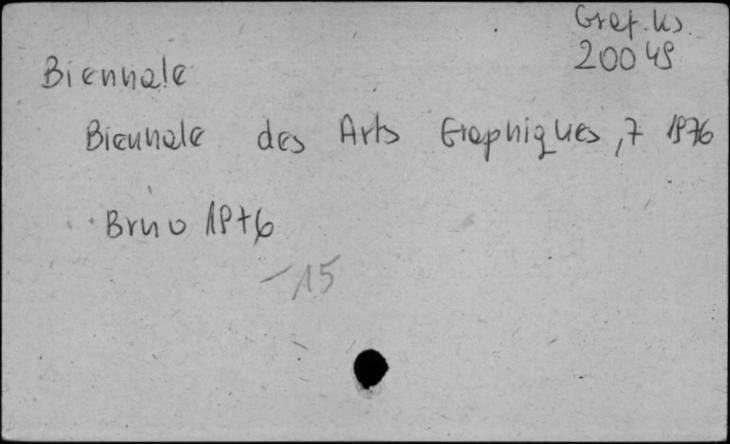 Graph. Ks.
20049
Biennale
Biennale des Arts Graphiques, 7 1976
Brno 1976
-15